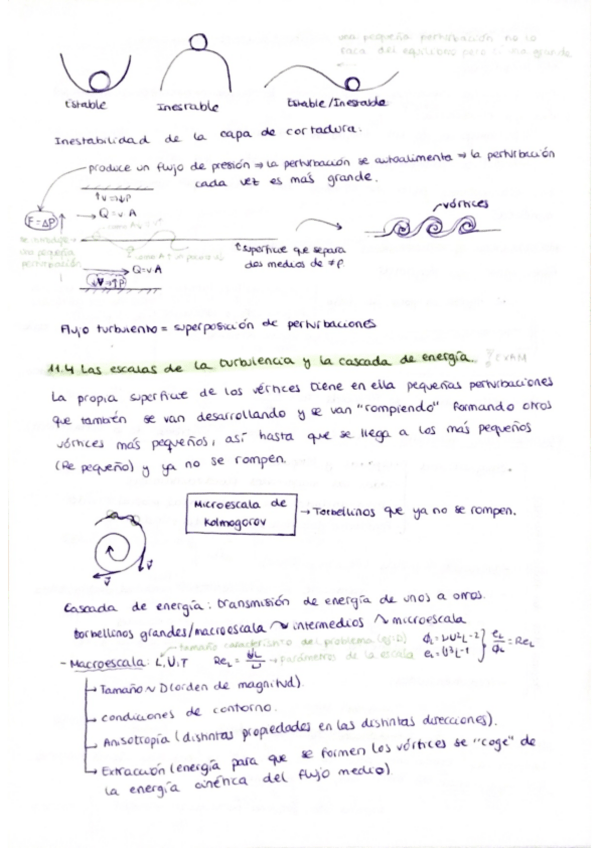 una pequeña perturbación no lo
saca del equilibrio pero si una grande
Estable Inestable Estable/Inestable
Inestabilidad de la capa de cortadura.
produce un flujo de presión ⇒ la perturbación se autoalimenta ⇒ la perturbación
cada vez es más grande.
↑v ⇒ ↓P
Q = v A
F = ΔP
vórtices
una pequeña
perturbación
superficie que separa
dos medios de ≠ ρ.
Q = v A
↓v ⇒ ↑P
Flujo turbulento = superposición de perturbaciones
11.4 Las escalas de la turbulencia y la cascada de energía. EXAM
La propia superficie de los vértices tiene en ella pequeñas perturbaciones
que también se van desarrollando y se van "rompiendo" formando otros
vórtices más pequeños, así hasta que se llega a los más pequeños
(Re pequeño) y ya no se rompen.
Microescala de
Kolmogorov
→ Torbellinos que ya no se rompen.
Cascada de energía: transmisión de energía de unos a otros.
torbellinos grandes/macroescala intermedios microescala
tamaño característico del problema
- Macroescala: L, U, T Re_L = UL/ν → parámetros de la escala ϕ_L = νU²L⁻² e_L = U³L⁻¹ } e_L/ϕ_L = Re_L
→ Tamaño ~ D (orden de magnitud).
→ condiciones de contorno.
→ Anisotropía (distintas propiedades en las distintas direcciones).
→ Extracción (energía para que se formen los vórtices se "coge" de
la energía cinética del flujo medio)